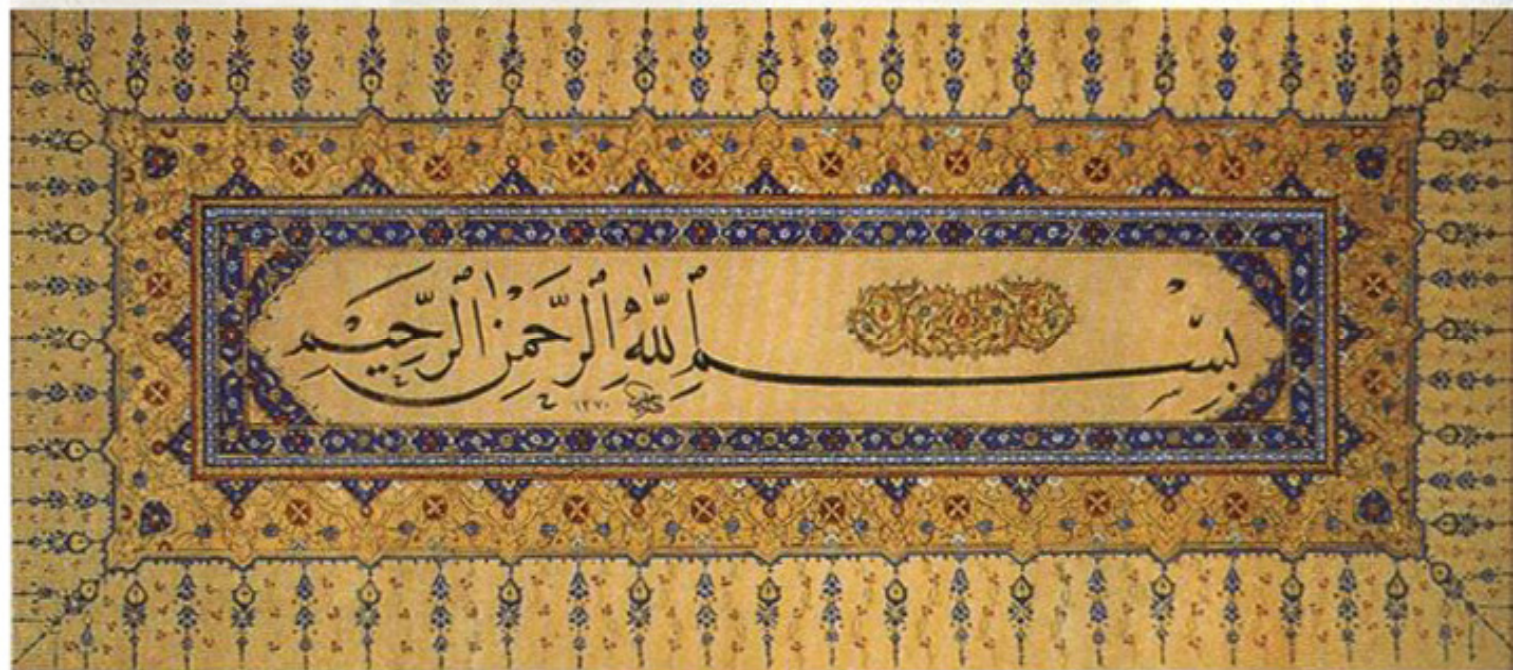 بِسْمِ اللّٰهِ الرَّحْمٰنِ الرَّحِيمِ
١٣٧٠